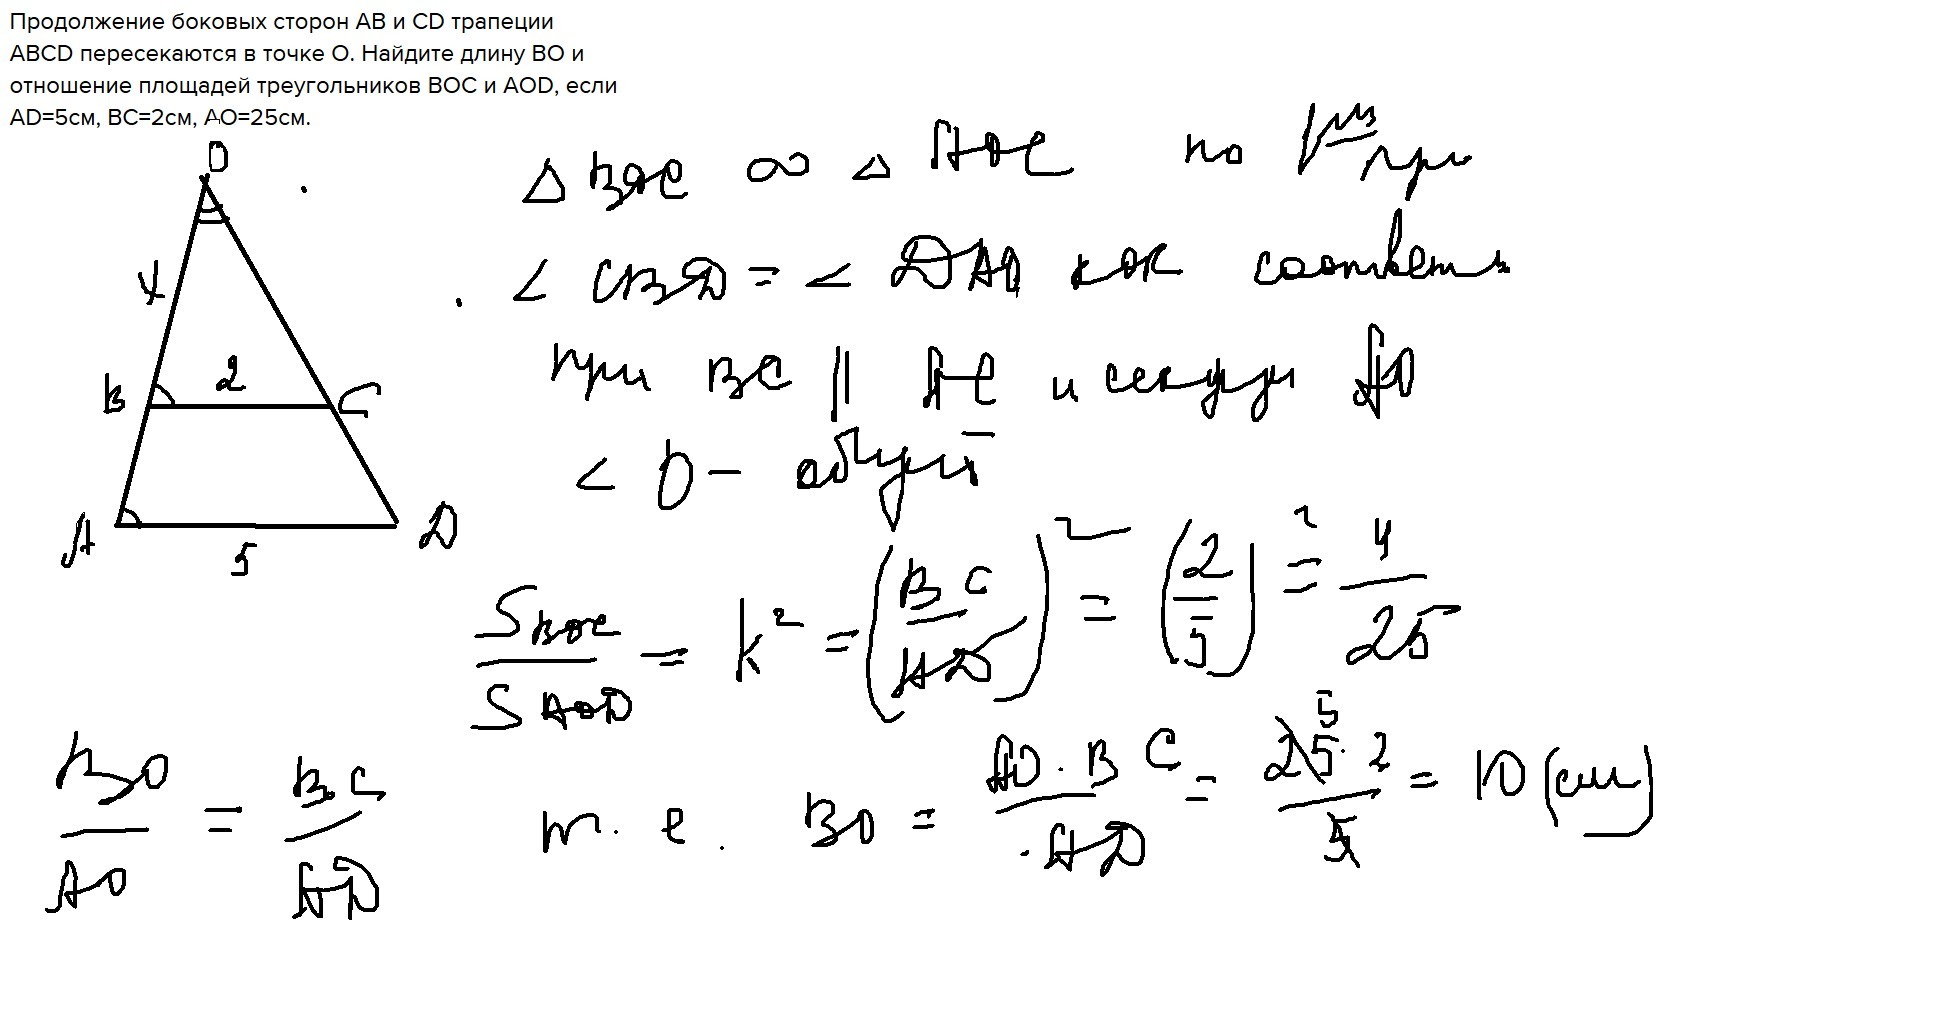 Продолжение боковых сторон AB и CD трапеции
ABCD пересекаются в точке O. Найдите длину BO и
отношение площадей треугольников BOC и AOD, если
AD=5см, BC=2см, AO=25см.
O
X
B 2 C
A 5 D
△ ∞ △ AOC по при
∠ = ∠ DAO как соответв
при BC || AC и секущи AO
< O - общий
S BOC / S AOD = k² = (BC / AD)² = (2 / 5)² = 4 / 25
BO / AO = BC / AD т. е. BO = AO · BC / AD = 25 · 2 / 5 = 10 (см)
5